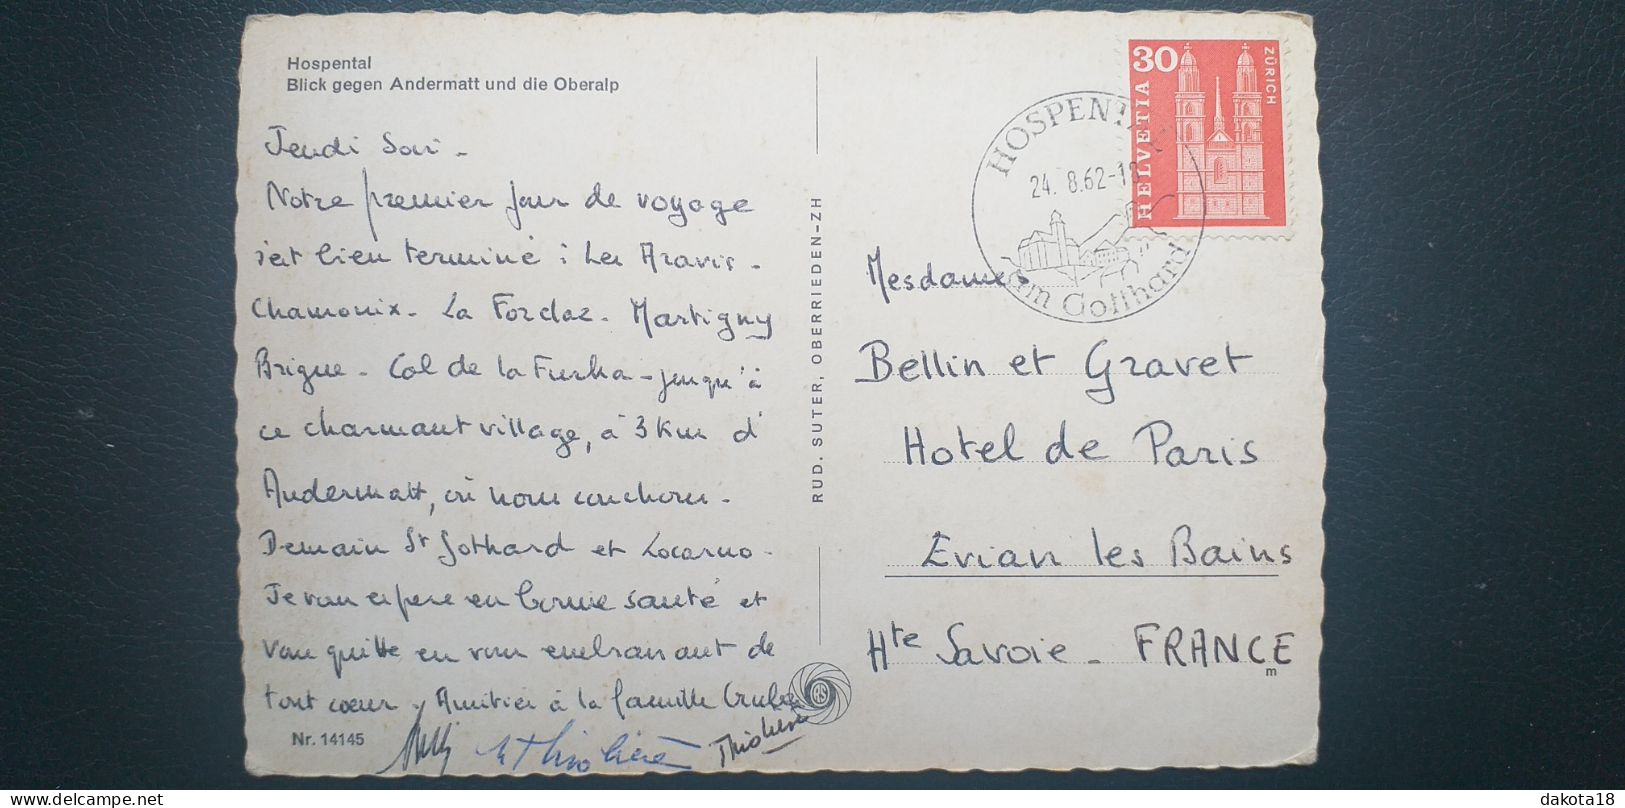 Hospental
Blick gegen Andermatt und die Oberalp
Jeudi Soir -
Notre premier jour de voyage
s'est bien terminé : Les Aravis -
Chamonix - La Forclaz - Martigny
Brigue - Col de la Furka - jusqu'à
ce charmant village, à 3 Km d'
Andermatt, où nous couchons -
Demain St Gothard et Locarno -
Je vous espère en bonne santé et
vous quitte en vous embrassant de
tout coeur. Amitiés à la famille
Nr. 14145
RUD. SUTER, OBERRIEDEN-ZH
RS
30
ZÜRICH
HELVETIA
HOSPENTAL
24. 8.62-18
am Gotthard
Mesdames
Bellin et Gravet
Hotel de Paris
Evian les Bains
Hte Savoie - FRANCE
m
delcampe.net
dakota18